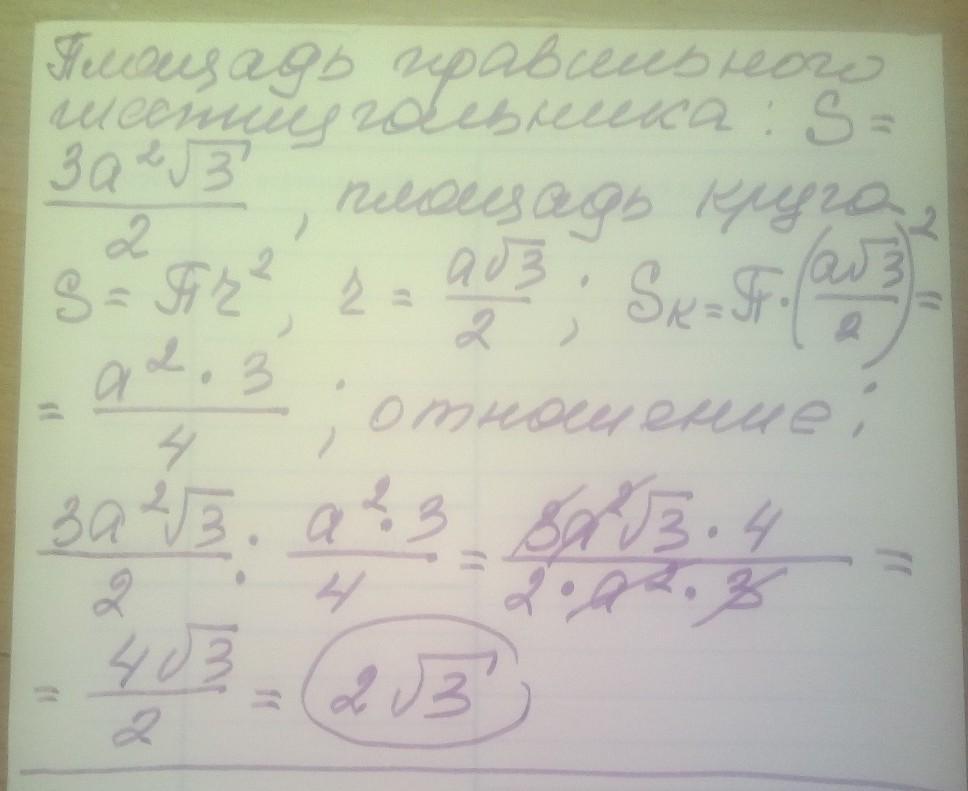 Площадь правильного
шестиугольника: S =
3a²√3/2, площадь круга
S = πr², r = a√3/2; Sк = π·(a√3/2)² =
= a²·3/4; отношение;
3a²√3/2 : a²·3/4 = 3a²√3·4/2·a²·3 =
= 4√3/2 = 2√3